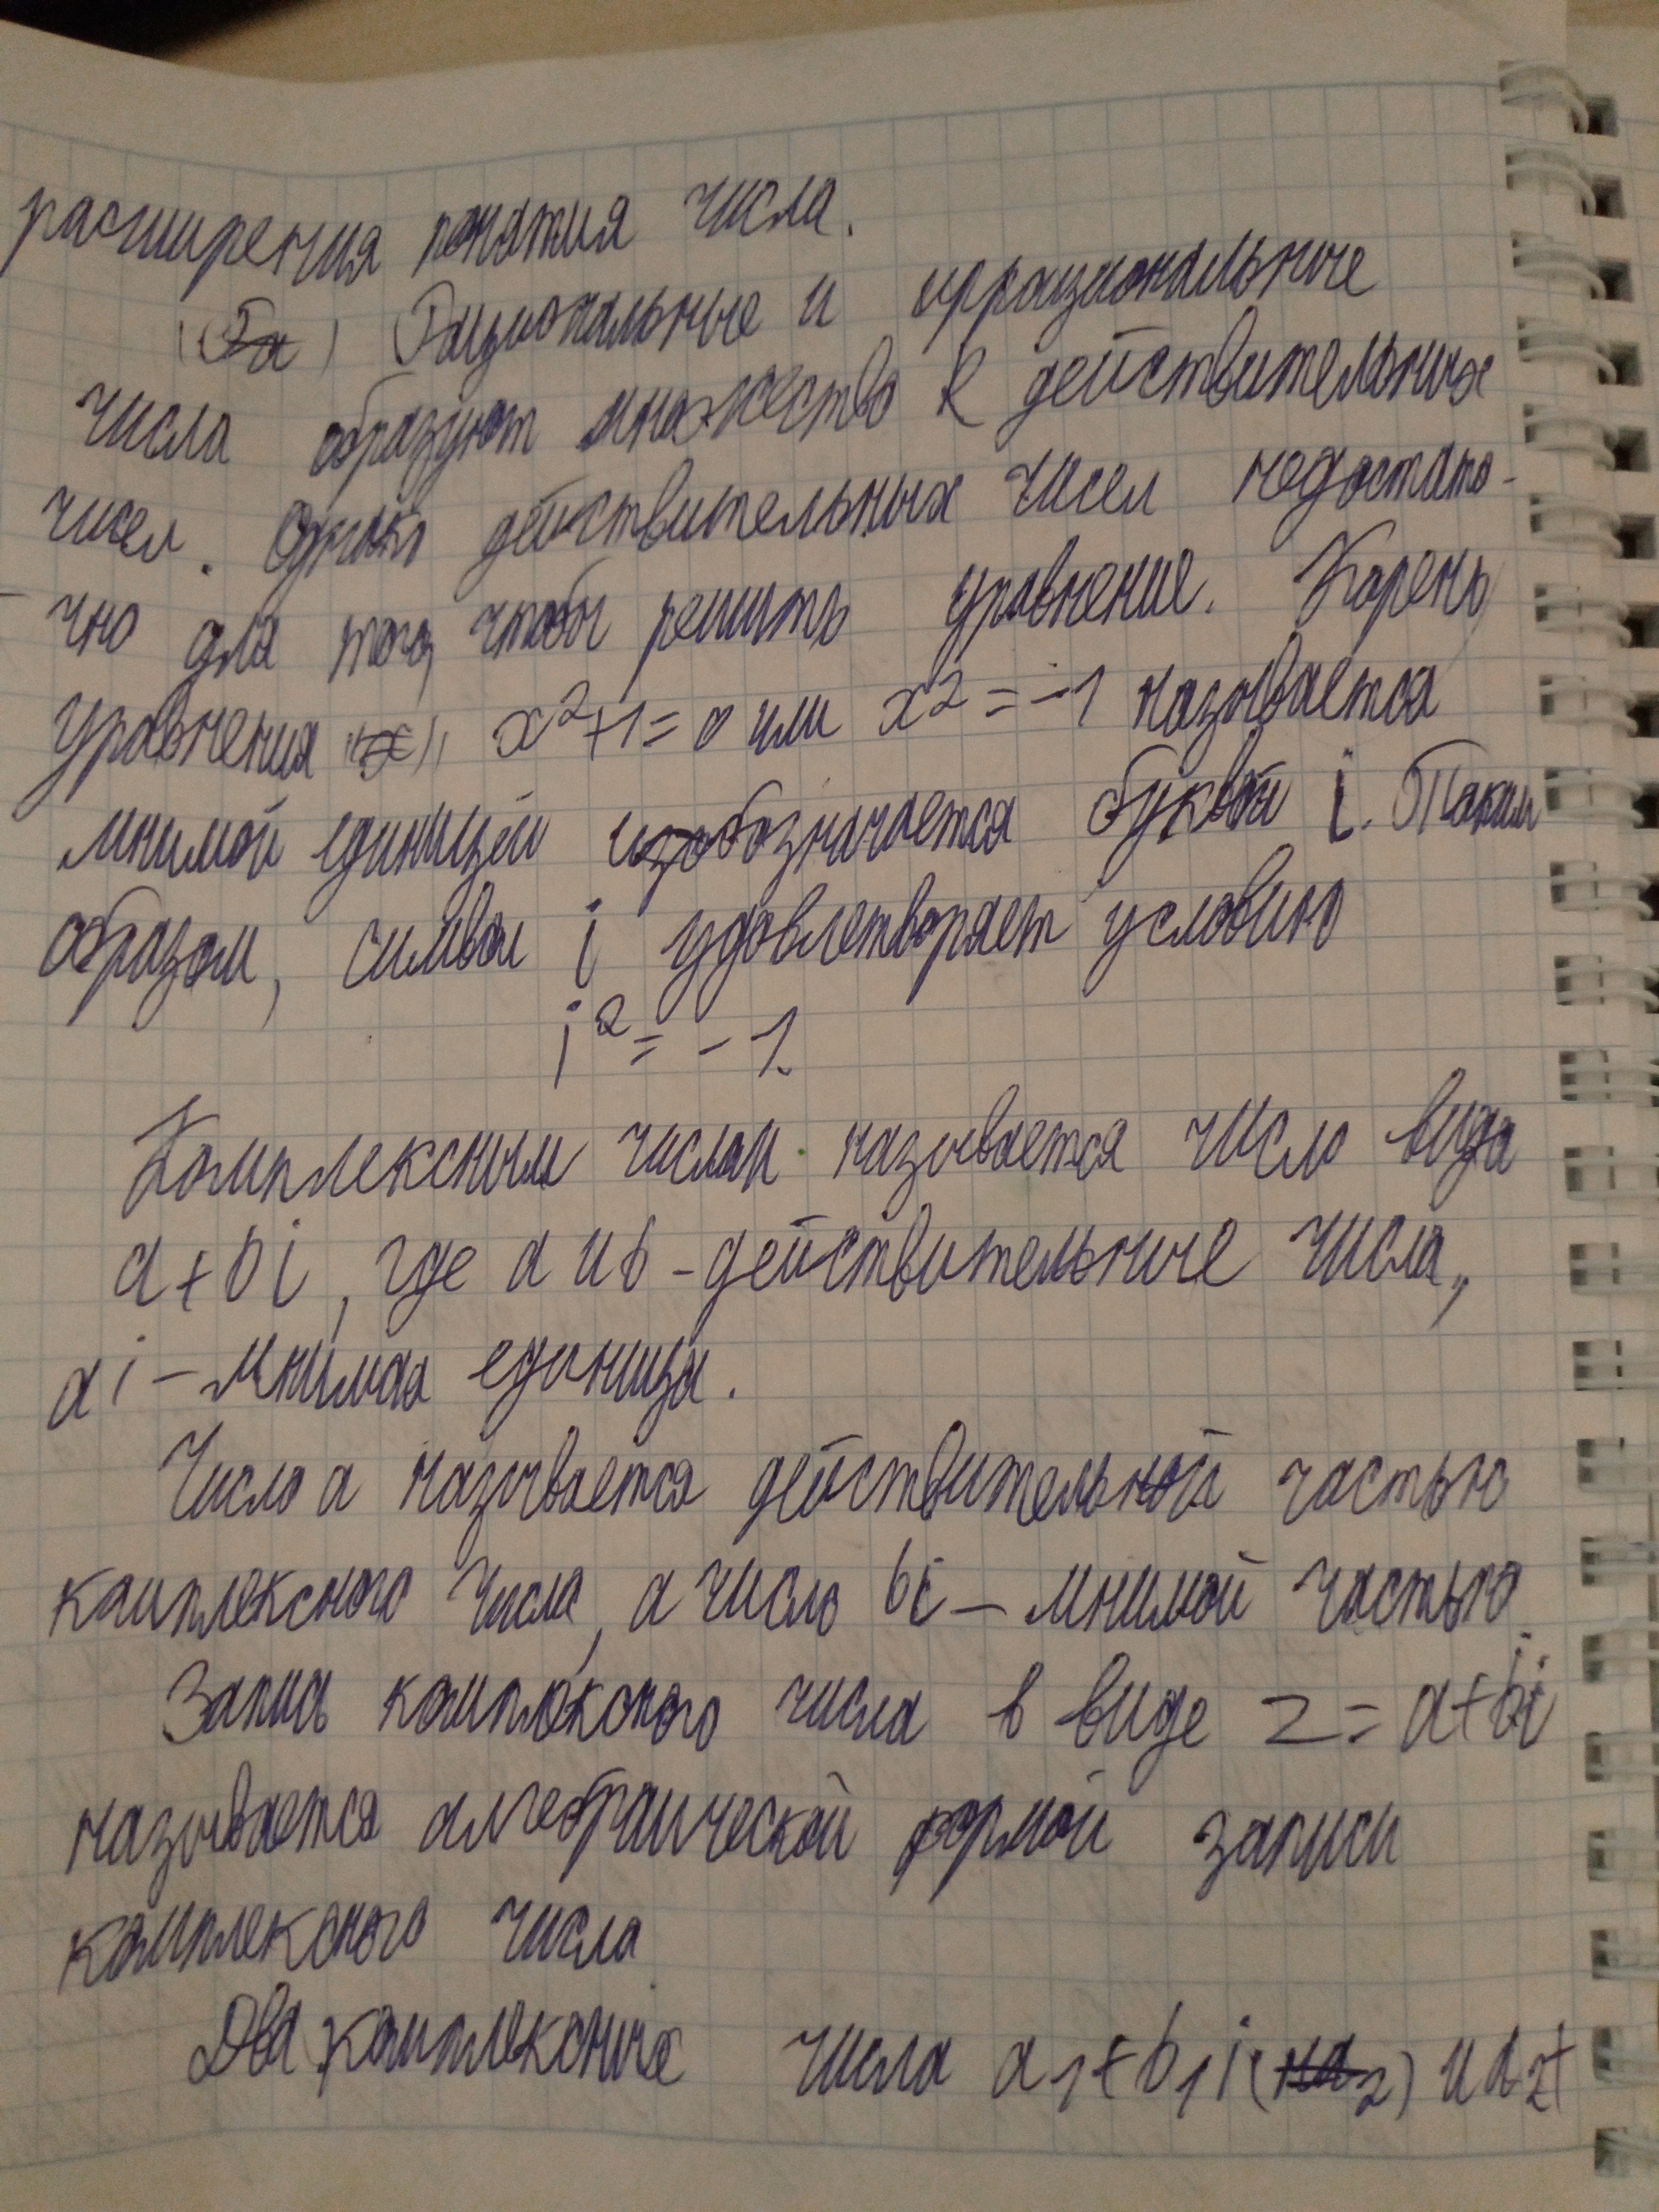 расширения понятия числа.
(Ра) Рациональные и иррациональные
числа образуют множество R действительных
чисел. Однако действительных чисел недостато-
чно для того, чтобы решить уравнение. Корень
уравнения "x" x²+1=0 или x²=-1 называется
мнимой единицей и обозначается буквой i. Таким
образом, символ i удовлетворяет условию
i²=-1.
Комплексным числом называется число вида
a+bi, где a и b - действительные числа,
а i - мнимая единица.
Число a называется действительной частью
комплексного числа, а число bi - мнимой частью.
Запись комплексного числа в виде z=a+bi
называется алгебраической формой записи
комплексного числа.
Два комплексные числа a₁+b₁i и a₂+